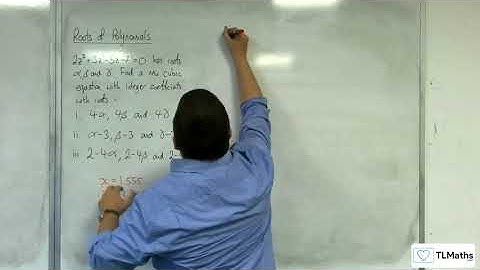 Roots of Polynomials
has roots
α, β and γ. Find a new cubic
equation with integer coefficients
with roots :
i. 4α, 4β and 4γ
ii. α-3, β-3 and
iii. 2-4α, 2-4β and 2-
TLMaths